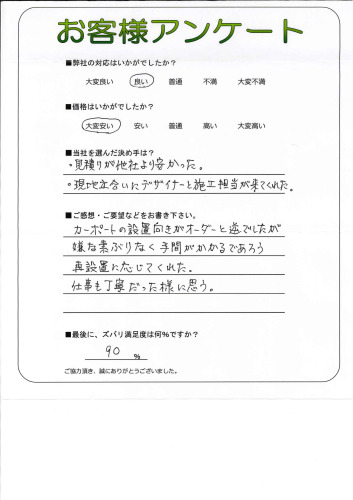 お客様アンケート
■弊社の対応はいかがでしたか?
大変良い 良い 普通 不満 大変不満
■価格はいかがでしたか?
大変安い 安い 普通 高い 大変高い
■当社を選んだ決め手は?
・見積りが他社より安かった。
・現地立合いにデザイナーと施工担当が来てくれた。
■ご感想・ご要望などをお書き下さい。
カーポートの設置向きがオーダーと逆でしたが
嫌な素ぶりなく手間がかかるであろう
再設置に応じてくれた。
仕事も丁寧だった様に思う。
■最後に、ズバリ満足度は何%ですか?
90 %
ご協力頂き、誠にありがとうございました。